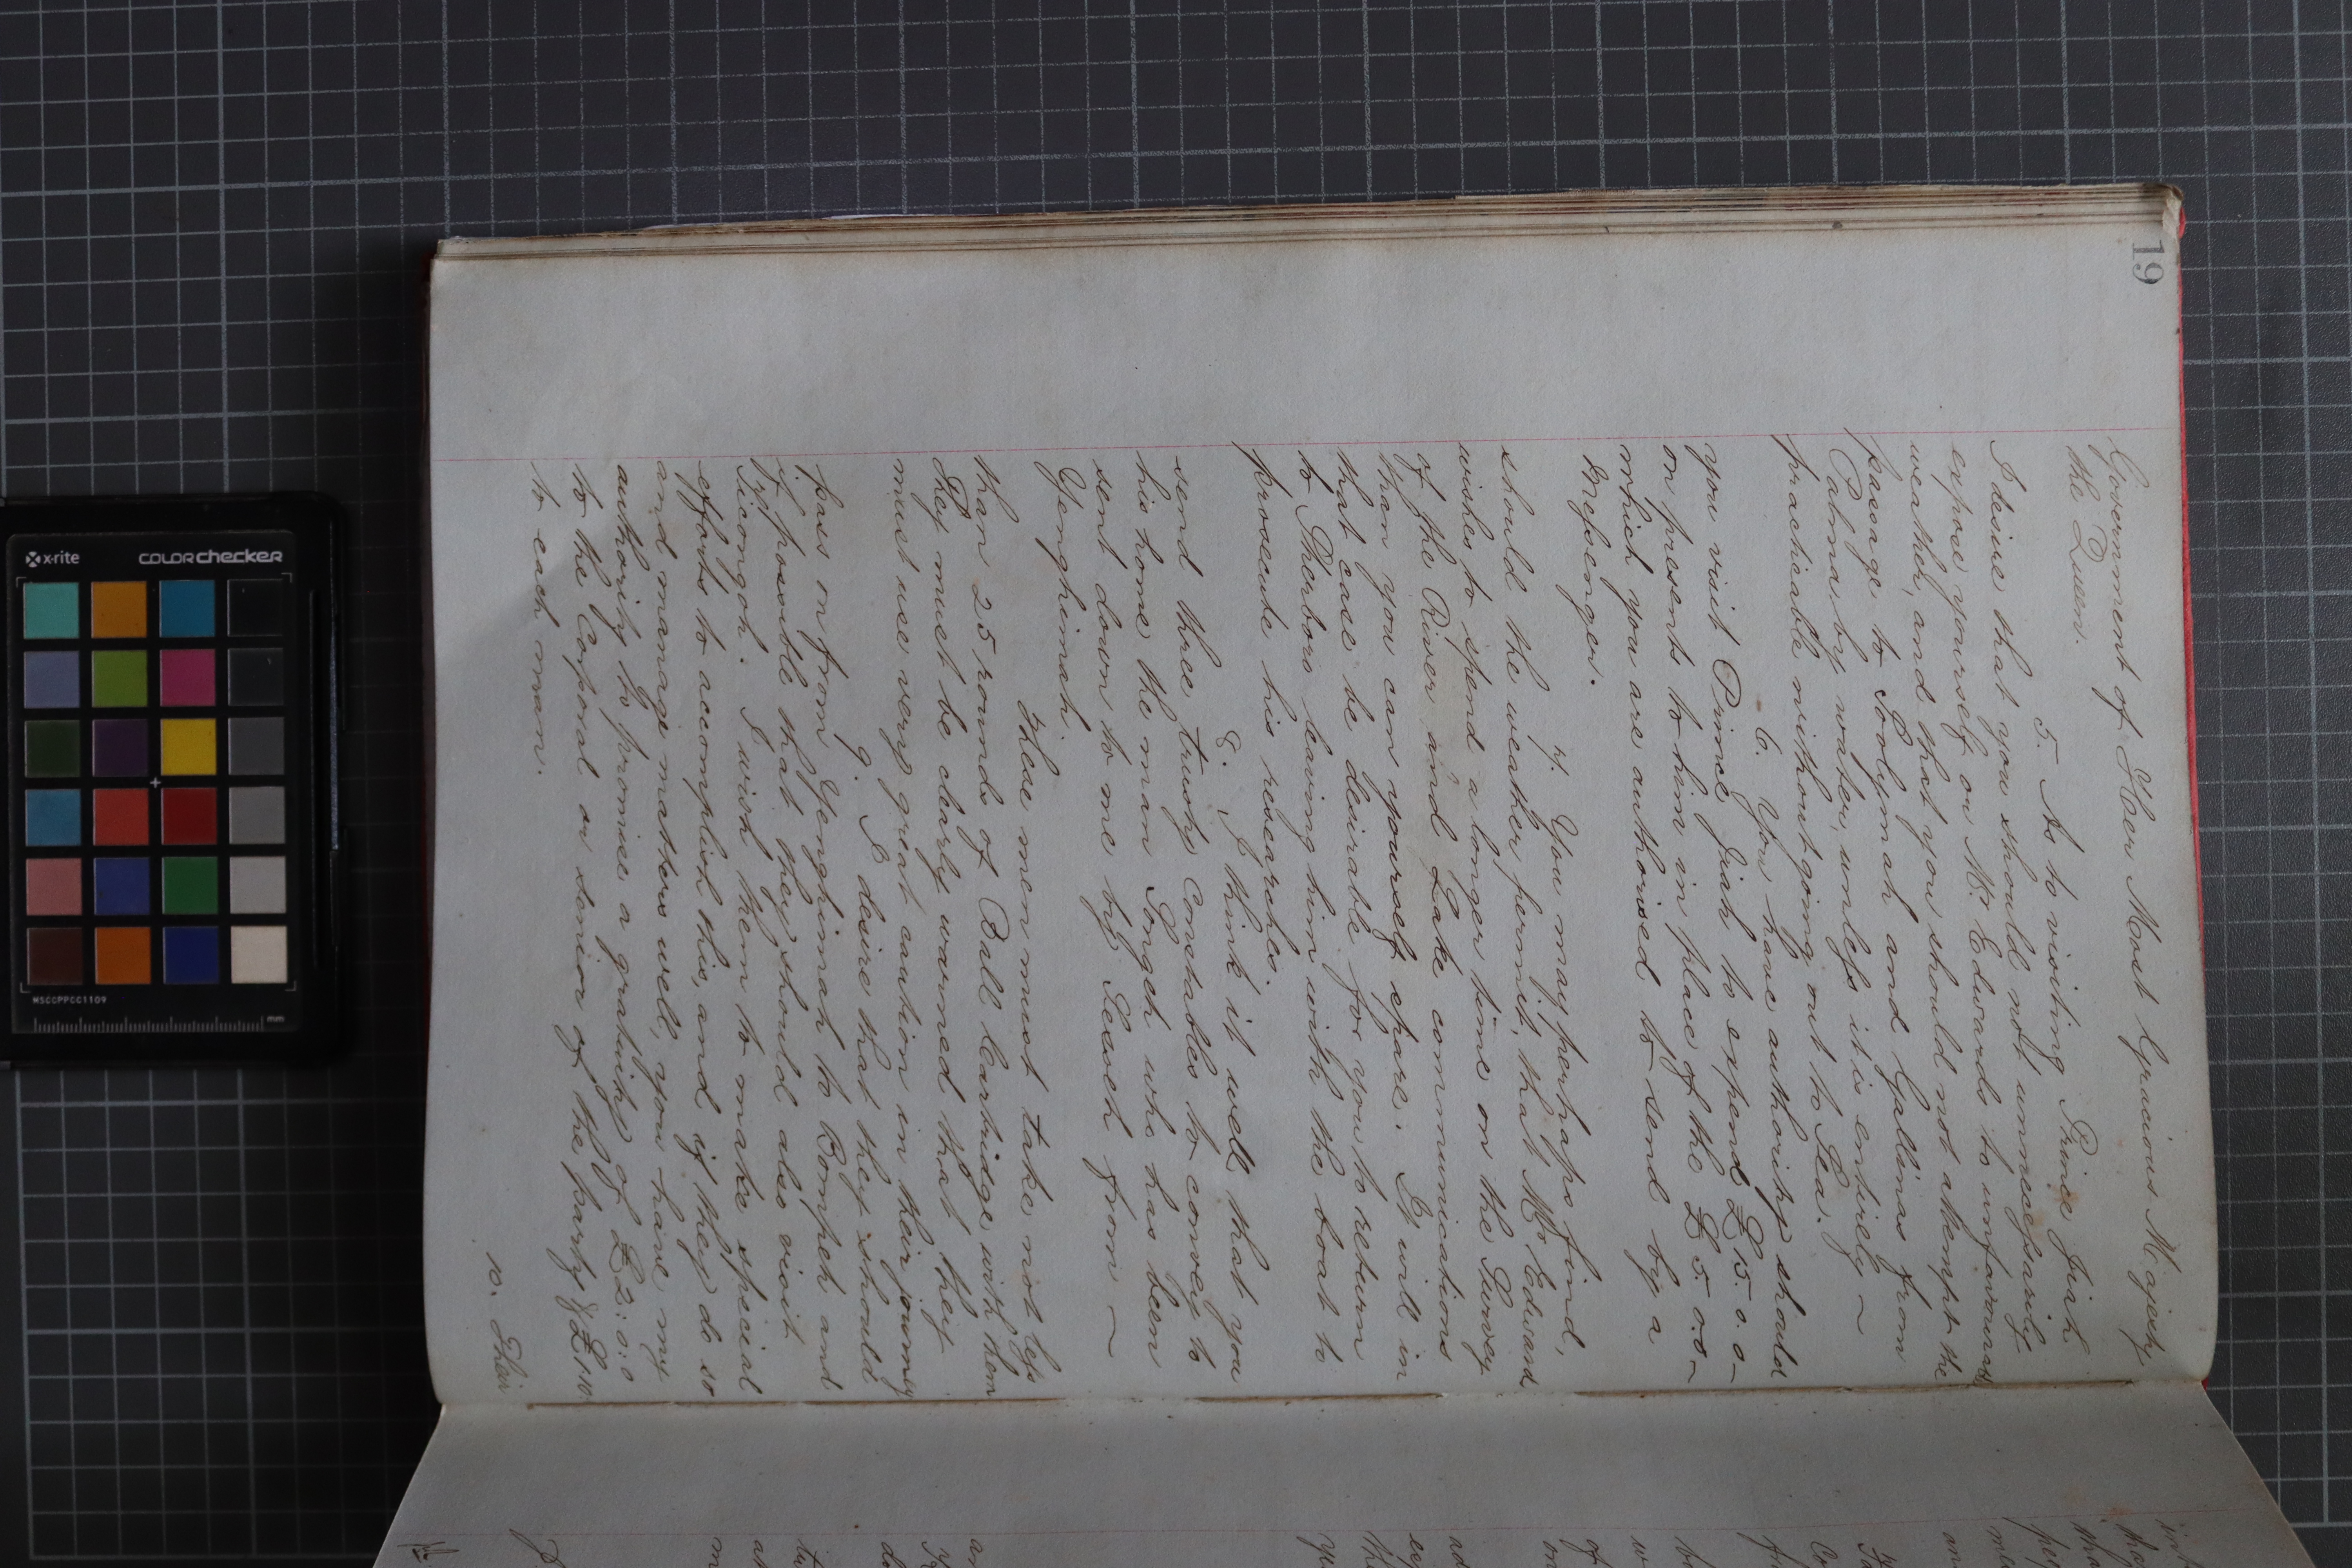 19
Government of Her Most Gracious Majesty
the Queen.
5. As to visiting Prince Jiah
I desire that you should not unnecessarily
expose yourself or Mr Edwards to unfavourable
weather, and that you should not attempt the
passage to Soolymah and Gallinas from
Palma by water, unless it is entirely ~
practicable without going out to Sea.
6. You have authority should
you visit Prince Jiah to expend £15.0.0 –
on presents to him in place of the £5.0.0 –
which you are authorised to send by a
Messenger.
7. You may perhaps find,
should the weather permit, that Mr Edwards
wishes to spend a longer time on the Survey
of the River and Lake communications
than you can yourself spare. It will in
that case be desirable for you to return
to Sherboro leaving him with the boat to
prosecute his researches.
8. I think it well that you
send three trusty Constables to convey to
his home the man Songeh who has been
sent down to me by Seeveh from ~
Yenghimah
These men must take not less
than 25 rounds of Ball Cartridge with them
They must be clearly warned that they
must use very great caution in their journey
9. I desire that they should
pass on from Yenghimah to Bompeh and
if possible that they should also visit
Ticongoh. I wish them to make special
efforts to accomplish this, and if they do so
and manage matters well, you have my
authority to promise a gratuity of £2:0:0
to the Corporal or senior of the party & £1:10
to each man.
10.
x-rite
COLORchecker
MSCCPPCC1109
mm